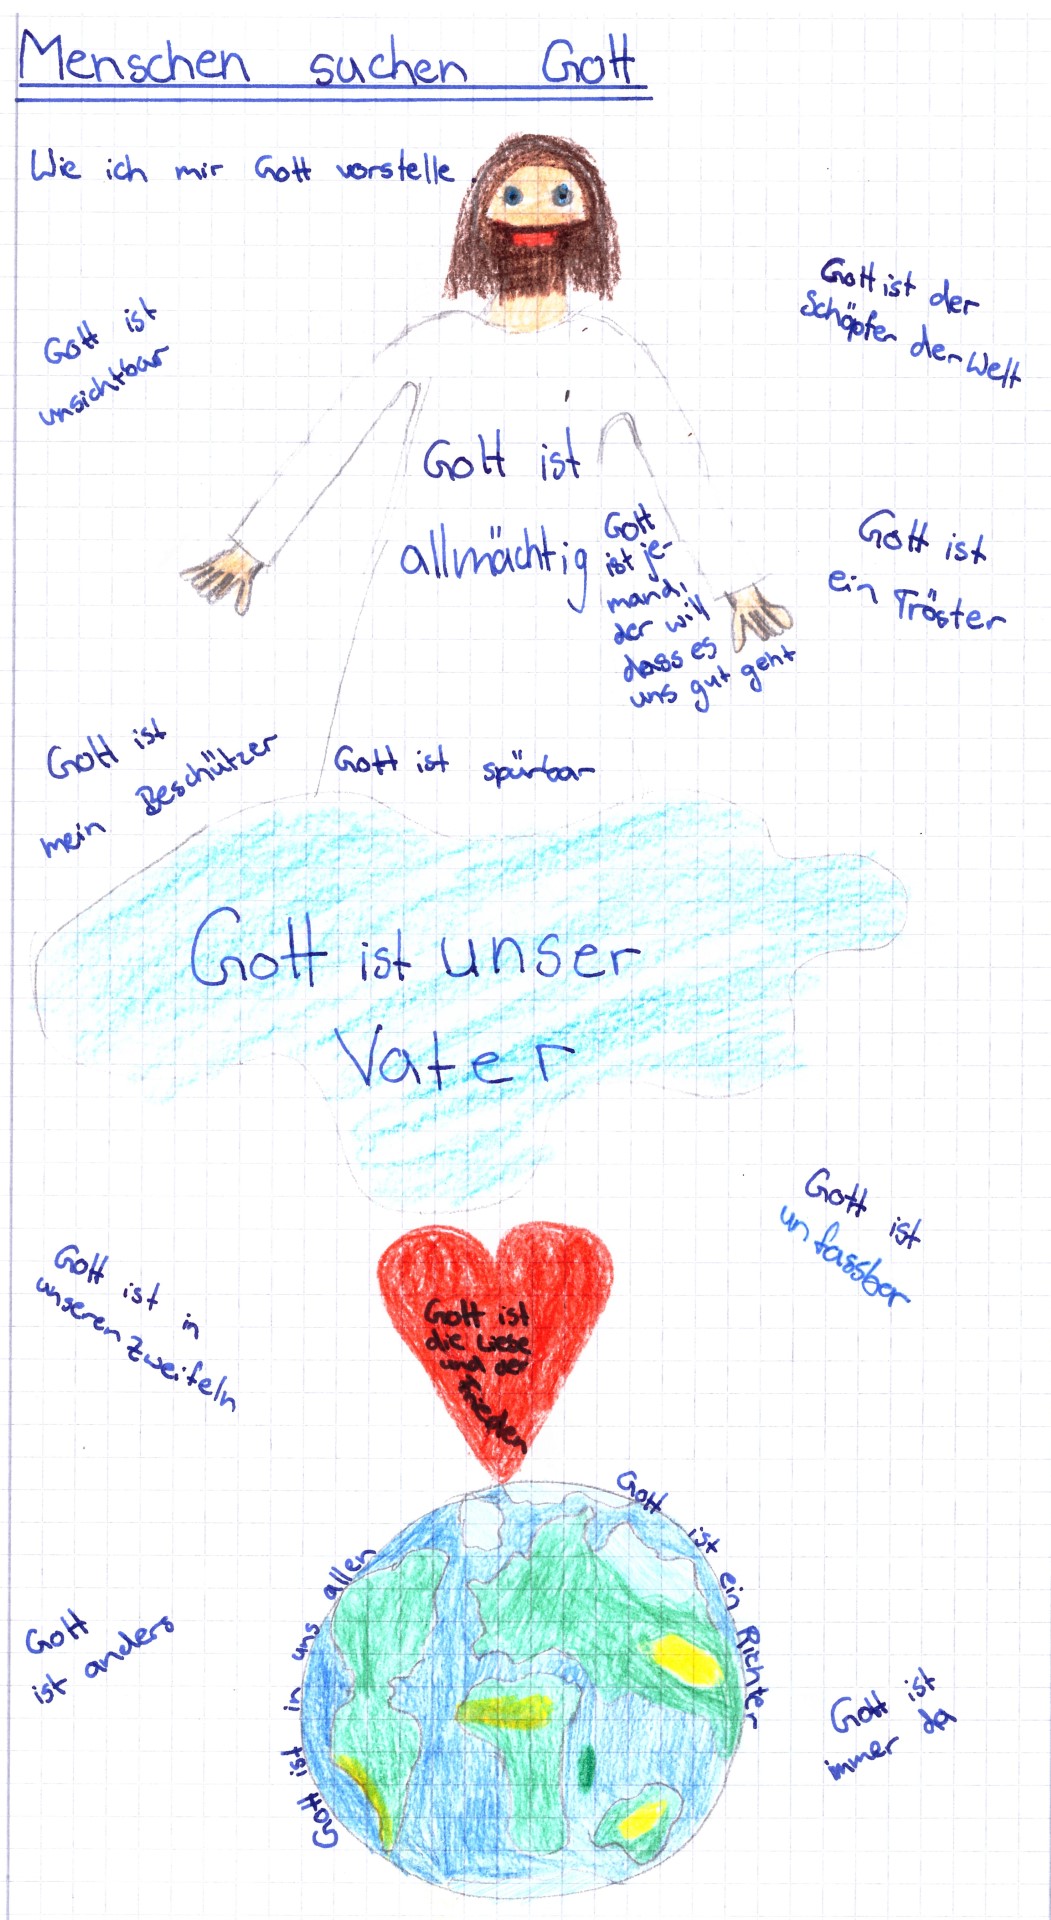 Menschen suchen Gott
Wie ich mir Gott vorstelle.
Gott ist
unsichtbar
Gott ist der
Schöpfer der Welt
Gott ist
allmächtig
Gott
ist je-
mand,
der will
dass es
uns gut geht
Gott ist
ein Tröster
Gott ist
mein Beschützer
Gott ist spürbar
Gott ist unser
Vater
Gott ist
unfassbar
Gott ist in
unseren Zweifeln
Gott ist
die Liebe
und der
Frieden
Gott ist ein Richter
Gott ist in uns allen
Gott
ist anders
Gott ist
immer da